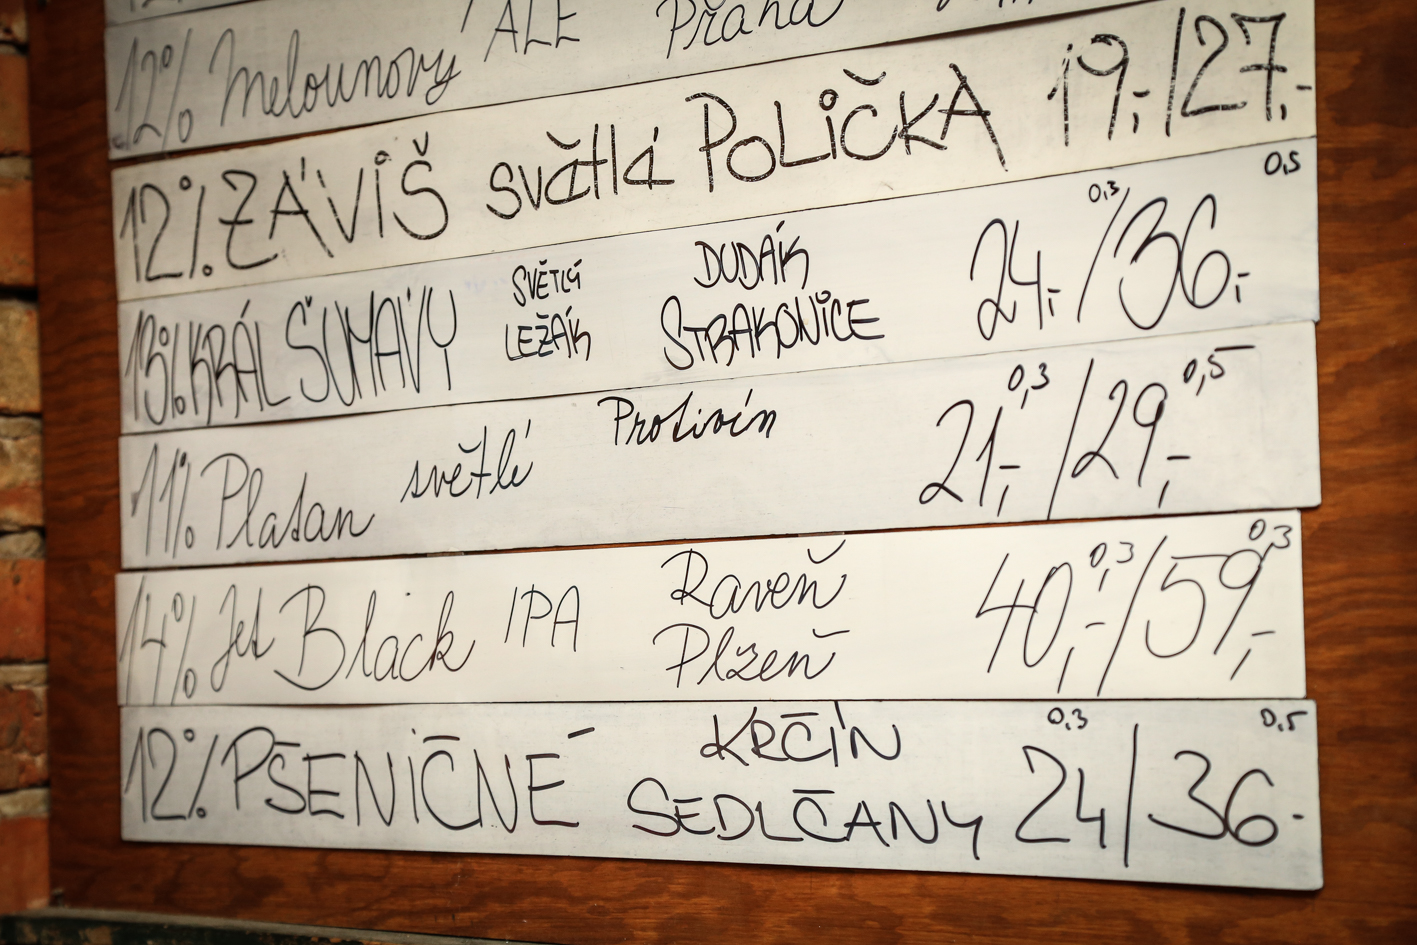 12% Melounový ALE Praha
12% ZÁVIŠ světlá POLIČKA 19,-/27,-
0,3 0,5
13% KRÁL ŠUMAVY SVĚTLÝ LEŽÁK DUDÁK STRAKONICE 24,-/36,-
0,3 0,5
11% Platan světlé Protivín 21,-/29,-
0,3 0,3
14% Jet Black IPA Raveň Plzeň 40,-/59,-
0,3 0,5
12% PŠENIČNÉ KRČÍN SEDLČANY 24/36-